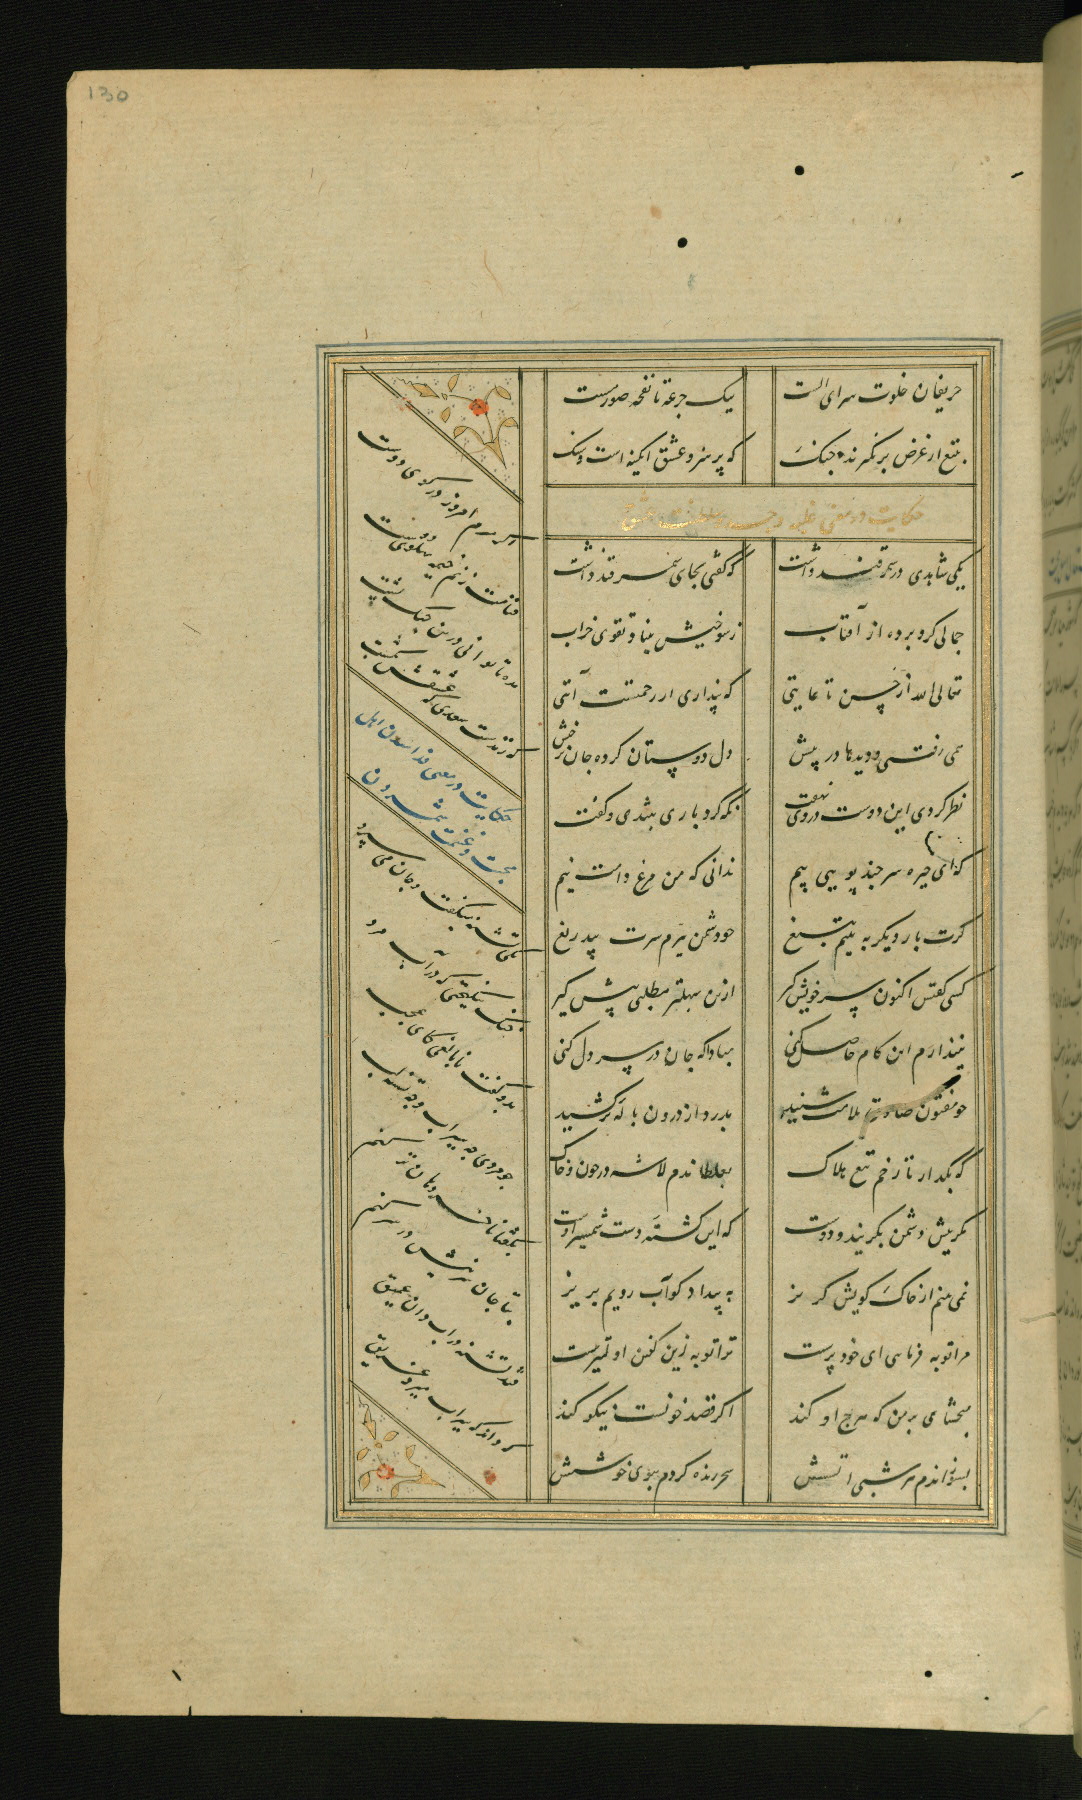 130
حریفان خلوت سرای الست
بیک جرعه تا نفخه صور مست
بتیغ از غرض بر نگیرند جنگ
که پرهیز و عشق آبگینه است و سنگ
حکایت در معنی سلطنت عشق
یکی شاهدی در سمرقند داشت
که گفتی بجای سمر قند داشت
جمالی گرو برده از آفتاب
ز شوخیش بنیاد تقوی خراب
تعالی الله از حسن تا غایتی
که پنداری از رحمتست آیتی
همی رفتی و دیدها در پیش
دل دوستان کرده جان برخیش
نظر کردی این دوست در وی نهفت
نگه کرد باری بتندی و گفت
که ای خیره سر چند پویی پیم
ندانی که من مرغ دامت نیم
گرت بار دیگر به بینم بتیغ
چو دشمن ببرم سرت بیدریغ
کسی گفتش اکنون سر خویش گیر
ازین سهلتر مطلبی پیش گیر
نپندارم این کام حاصل کنی
مبادا که جان در سر دل کنی
چو مفتون صادق ملامت شنید
بدرد از درون ناله برکشید
که بگذار تا زخم تیغ هلاک
بغلطاندم لاشه در خون و خاک
مگر پیش دشمن بگویند و دوست
که این کشته دست شمشیر اوست
نمی بینم از خاک کویش گریز
به بیداد گو آب رویم بریز
مرا توبه فرمایی ای خود پرست
ترا توبه زین گفتن اولیترست
ببخشای بر من که هرچ او کند
اگر قصد خونست نیکو کند
بسوزاندم هر شبی آتشش
سحر زنده گردم ببوی خوشش
اگر میرم امروز در کوی دوست
قیامت زنم خیمه پهلوی دوست
مده تا توانی درین جنگ پشت
که زندست سعدی که عشقش بکشت
حکایت در معنی فدا شدن اهل
محبت و غنیمت شمردن
یکی تشنه میگفت و جان می سپرد
خنک نیکبختی که در آب مرد
بدو گفت نابالغی کای عجب
چو مردی چه سیراب و چه تشنه لب
بگفتا نه آخر دهان تر کنم
که تا جان شیرینش در سر کنم
فتد تشنه در آب دان عمیق
که داند که سیراب میرد غریق